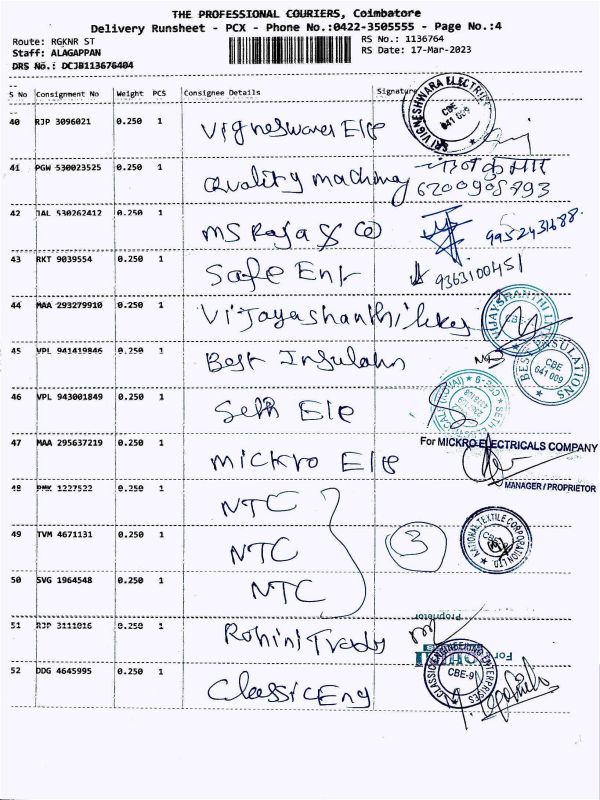 THE PROFESSIONAL COURIERS, Coimbatore
Delivery Runsheet - PCX - Phone No.:0422-3505555 - Page No.:4
Route: RGKNR ST RS No.: 1136764
Staff: ALAGAPPAN RS Date: 17-Mar-2023
DRS No.: DCJB113676404
S No Consignment No Weight PCS Consignee Details Signature
40 RJP 3096021 0.250 1 Vigneswara Ele
SRI VIGNESHWARA ELECTRIC
CBE
641 009
41 PGW 530023525 0.250 1 Quality machinay 6200908793
42 JAL 530262412 0.250 1 MS Raja & Co 9952431688
43 RKT 9039554 0.250 1 Safe Ent 9363100451
44 MAA 293279910 0.250 1 Vijayashanthi
VIJAYSHANTHI
CBE
45 VPL 941419846 0.250 1 Best Insulatn
BEST INSULATIONS
CBE
641 009
46 VPL 943001849 0.250 1 Seth Ele
SETH
47 MAA 295637219 0.250 1 mickro Ele
For MICKRO ELECTRICALS COMPANY
MANAGER / PROPRIETOR
48 PMK 1227522 0.250 1 NTC
49 TVM 4671131 0.250 1 NTC 3
NATIONAL TEXTILE CORPORATION LTD
CBE
50 SVG 1964548 0.250 1 NTC
51 RJP 3111016 0.250 1 Rohini Trady
Proprietor
For
52 DDG 4645995 0.250 1 Classic Eng
CLASSIC ENGINEERING ENTERPRISES
CBE-9